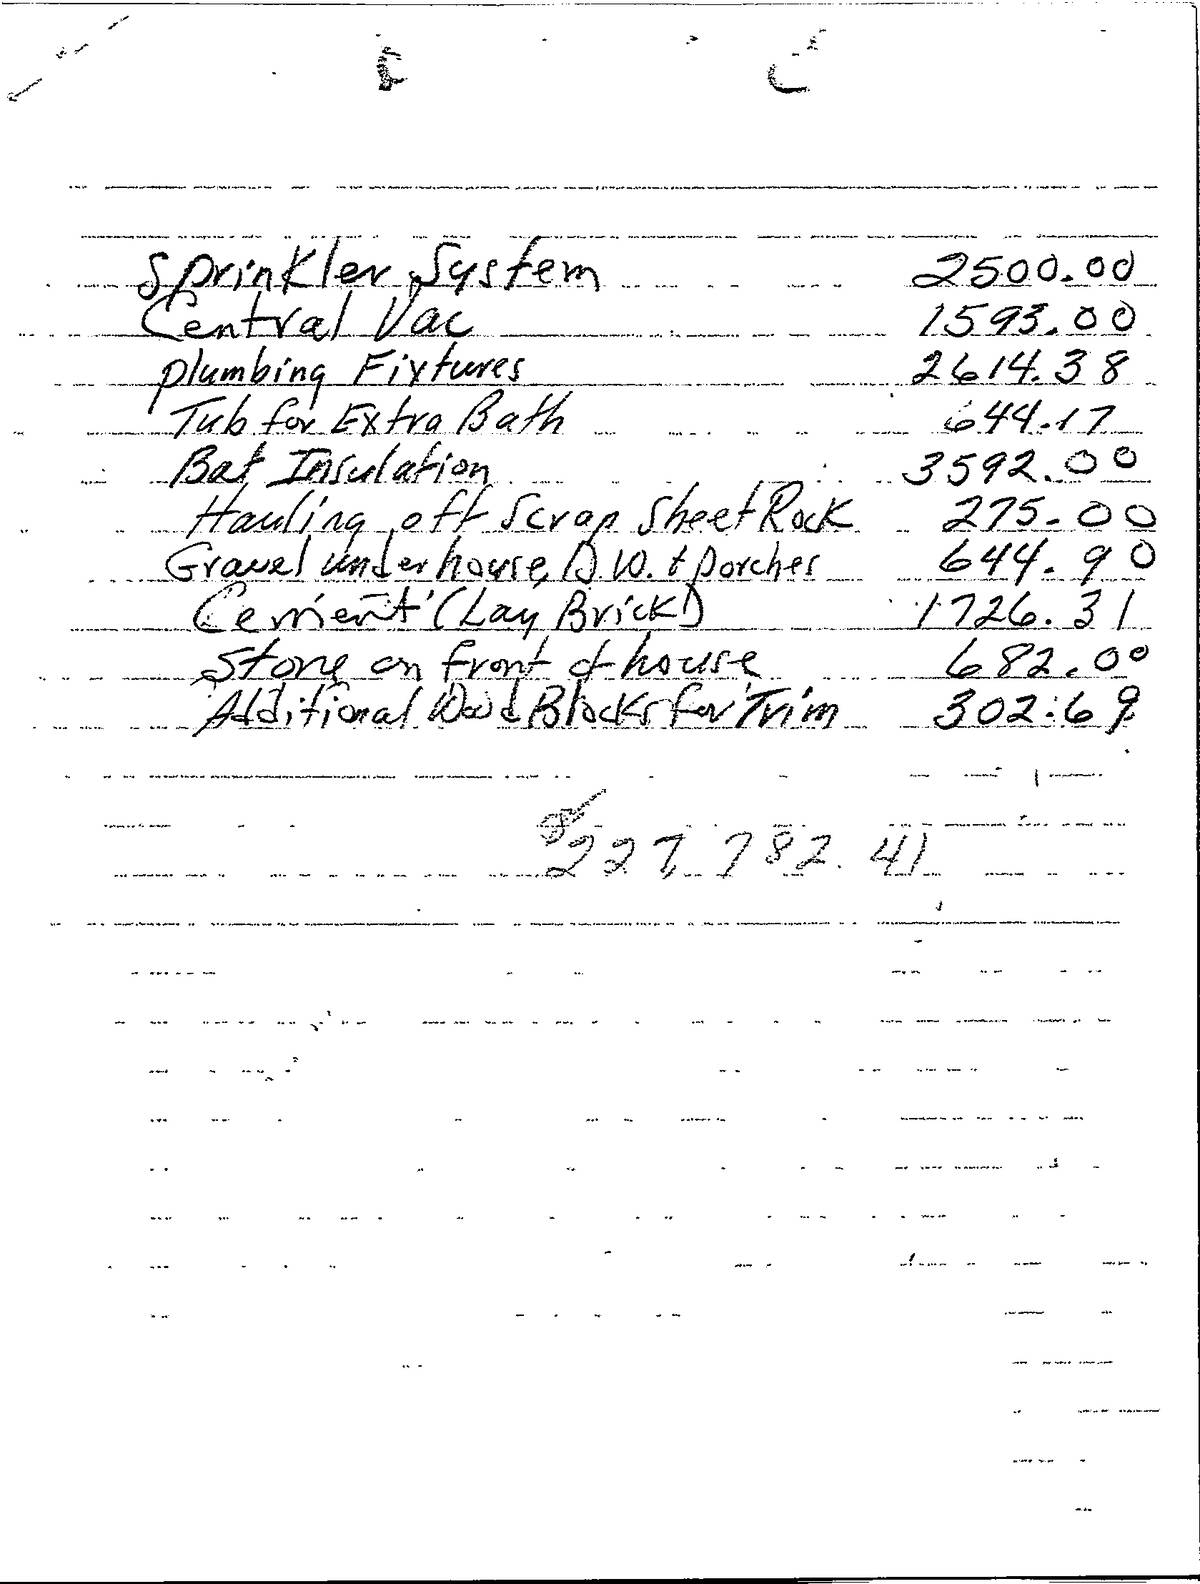 Sprinkler System 2500.00
Central Vac 1593.00
Plumbing Fixtures 2614.38
Tub for Extra Bath 644.17
Bat Insulation 3592.00
Hauling off Scrap Sheet Rock 275.00
Gravel under house, D.W. & Porches 644.90
Cement (Lay Brick) 1726.31
Stone on front of house 682.00
Additional Wood Blocks for Trim 302.69
$227,782.41